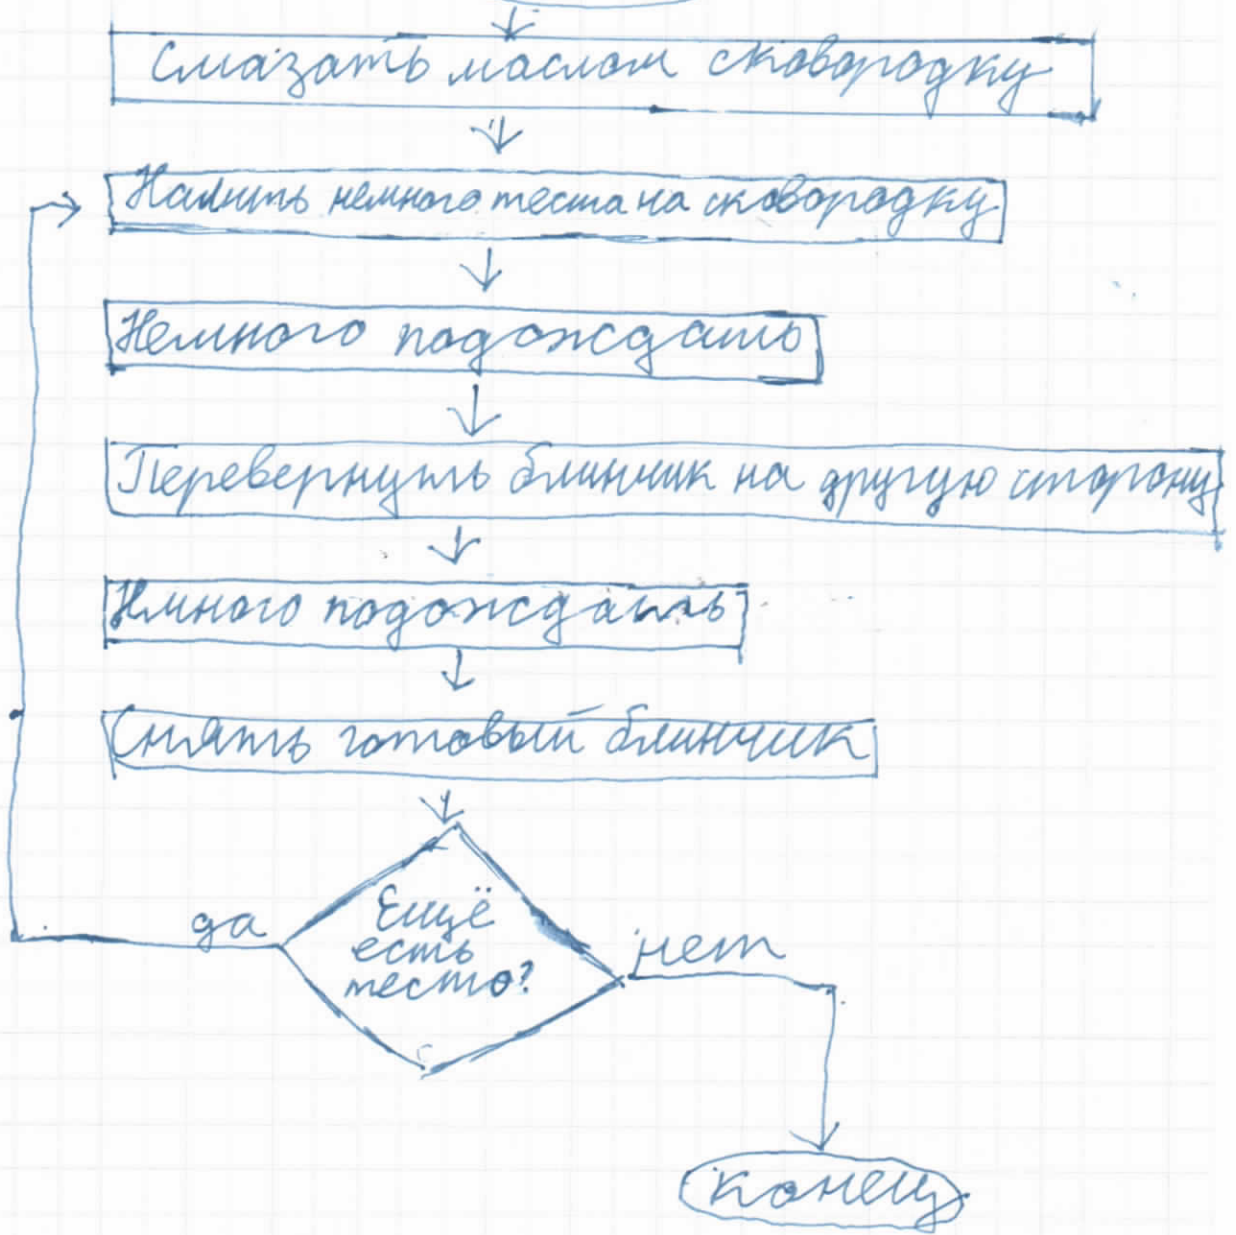 Смазать маслом сковородку
Налить немного теста на сковородку
Немного подождать
Перевернуть блинчик на другую сторону
Нмного подождать
Снять готовый блинчик
Ещё
есть
тесто?
да
нет
конец